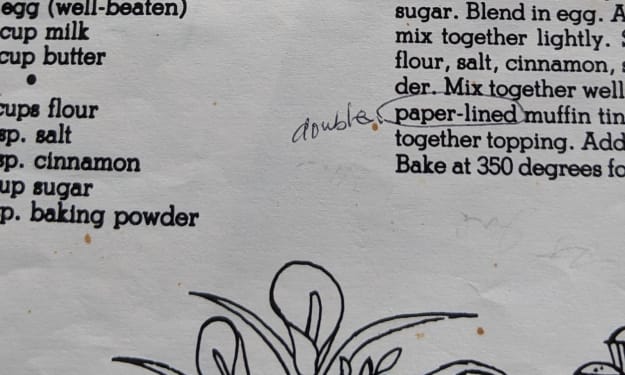 egg (well-beaten)
cup milk
cup butter
cups flour
sp. salt
sp. cinnamon
up sugar
p. baking powder
sugar. Blend in egg. A
mix together lightly. S
flour, salt, cinnamon, s
der. Mix together well
double paper-lined muffin tin
together topping. Add
Bake at 350 degrees fo